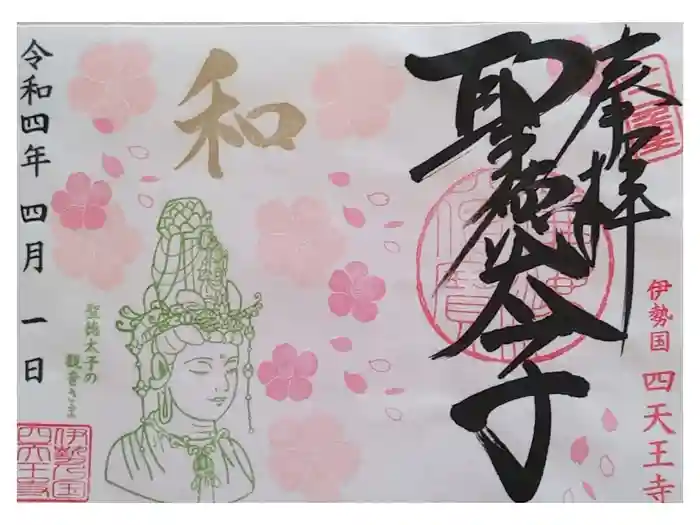 奉拝
聖徳太子
伊勢国 四天王寺
和
聖徳太子の
観音さま
令和四年 四月 一日
伊勢之国
四天王寺